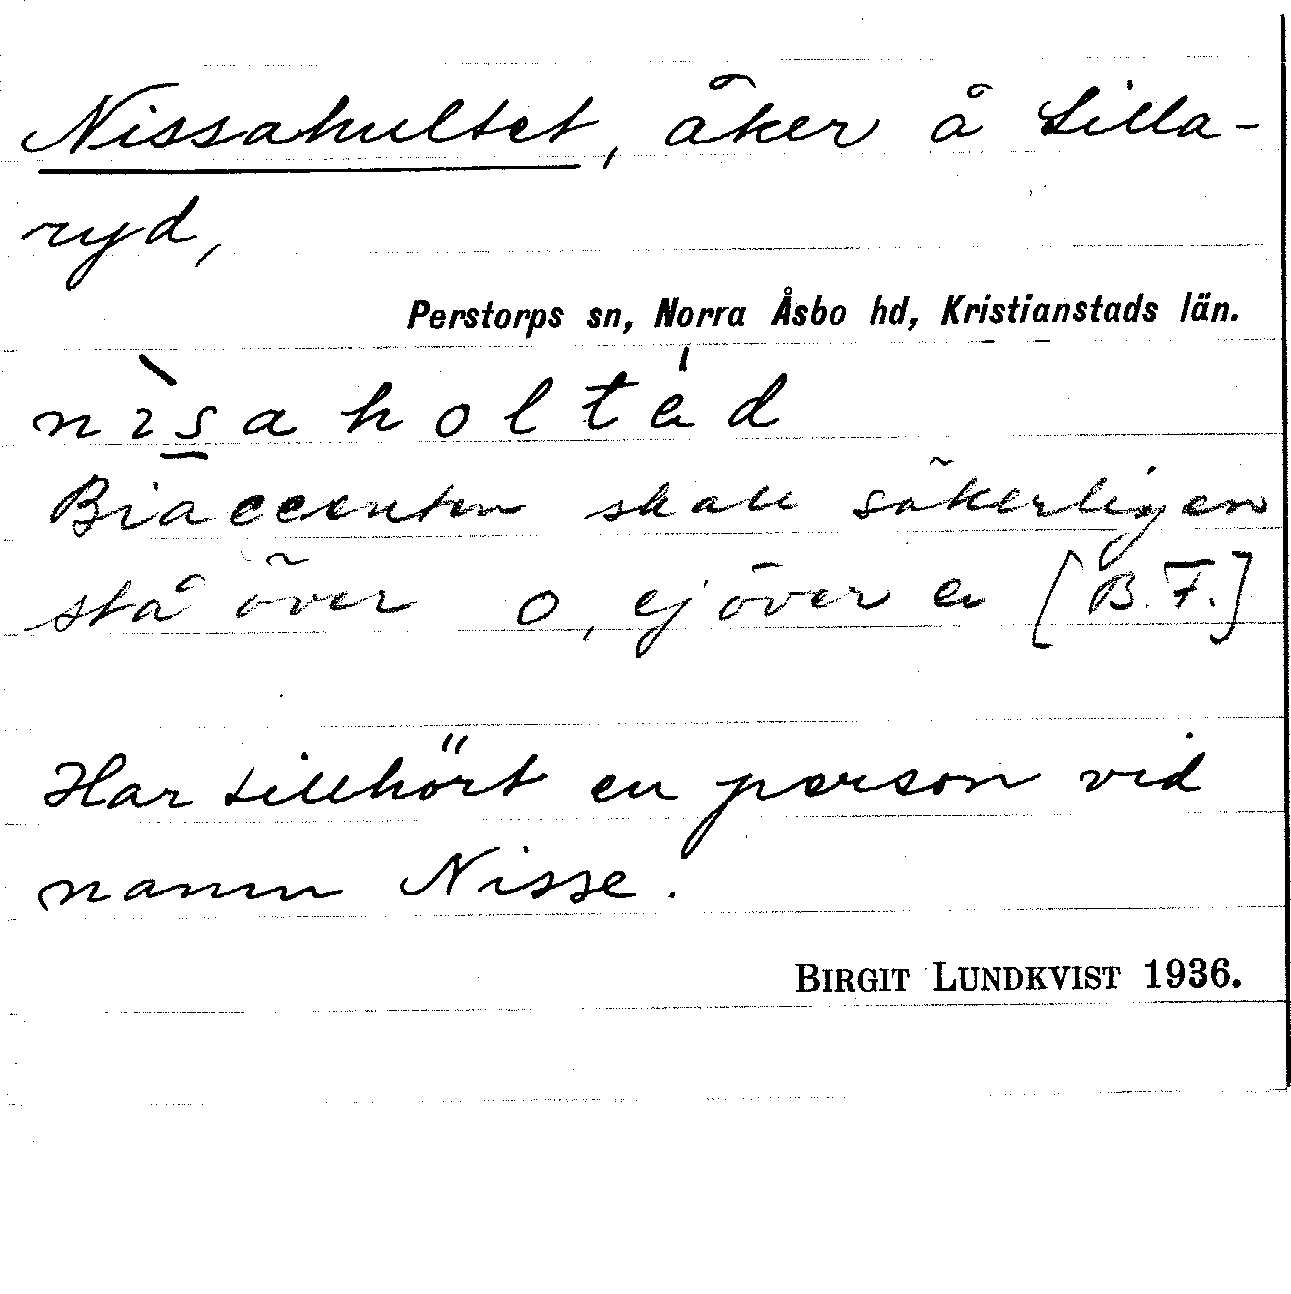 Nissahultet, åker å Lilla-
ryd,
Perstorps sn, Norra Åsbo hd, Kristianstads län.
nìsaholtéd
Biaccenten skall säkerligen
stå över o, ej över e [B.F.]
Har tillhört en person vid
namn Nisse.
BIRGIT LUNDKVIST 1936.